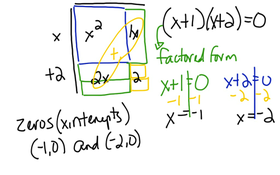 (x+1)(x+2)=0
x
x² 1x
+
+2
2x 2
factored form
x+1=0
-1 -1
x=-1
x+2=0
-2 -2
x=-2
zeros (x intercepts)
(-1,0) and (-2,0)